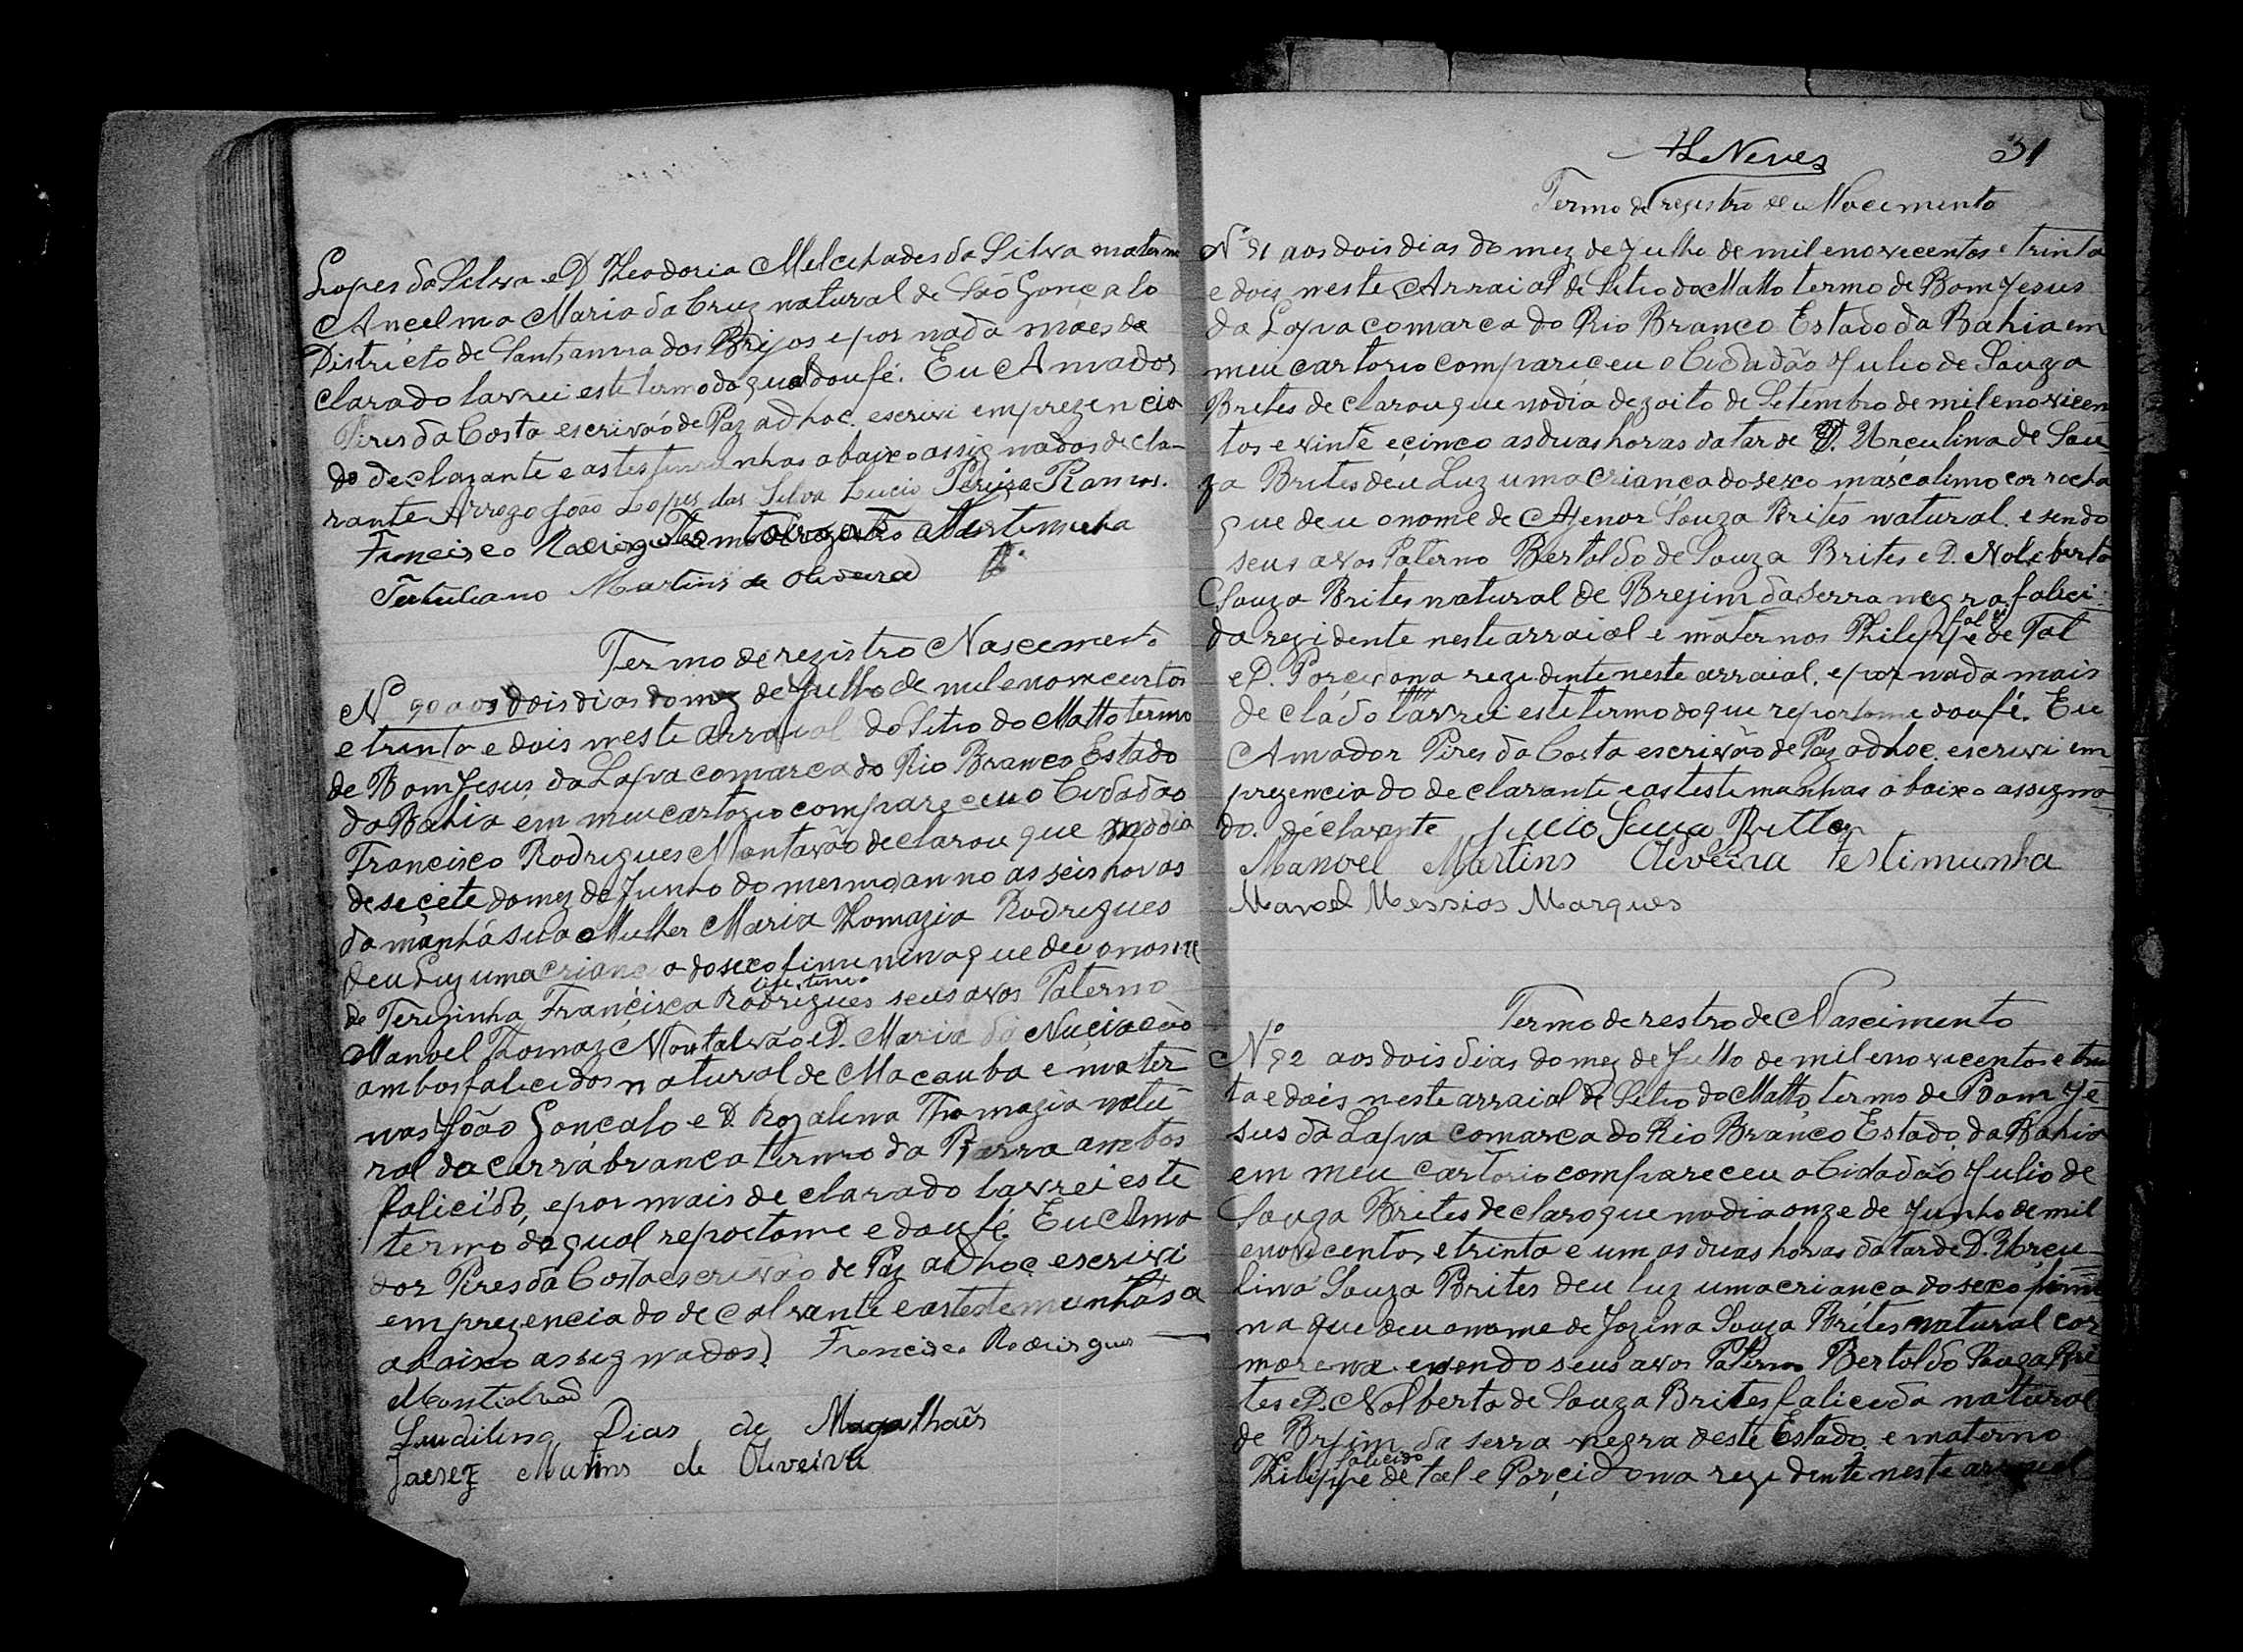 Lopes da Silva e D Theodoria Melcehades da Silva materno
Ançelmo Maria da Cruz natural de São Gonçalo
Districto de Santanna dos Brejos e por nada maes de
clarado lavrei este termo do qual dou fé. Eu Amador
Pires da Costa escrivão de Paz ad hoc. escrivi em prezencia
do declarante e as testemunhas abaixo assignados decla-
rante Arrogo João Lopes das Silva Lucio Pereira Ramos.
Francisco Rodrigues testimunha
Tertuliano Martins de Oliveira
Termo de registro Nascimento
Nº 90 aos dois dias do mez de Julho de mil enovecentos
e trinta e dois neste arraial do Sitio do Matto termo
de Bom Jesus da Lapa comarca do Rio Branco Estado
da Bahia em meu cartorio compareceu o Cidadão
Francisco Rodrigues Montavão declarou que no dia
deseçete do mez de Junho do mermo anno as seis horas
da manhá sua Mulher Maria Thomazia Rodrigues
deu Luz uma criança do sexo feminina que deu o nome
de Terezinha Françisca Rodrigues seus avos Paterno
Manoel Thomaz Montalvão e D. Maria da Nuciacão
ambos falicidos natural de Macauba e mater
nas João Gonçalo e D. Rozalina Thomazia natu
ral da carrabranca termo da Barra ambos
falicído, e por mais declarado lavrei este
termo do qual reportome e dou fé Eu Ama
dor Pires da Costa escrivão de Paz ad hoc escrivi
em prezencia do decalrante e as testemunhas a
abaixo assignados. Francisco Rodrigues
Montalvão
Laudilino Dias de Magalhaês
Jaesez Martins de Oliveira
ALNeves 31
Termo de registro de Nacimento
Nº 91 aos dois dias do mez de Julho de mil enovecentos e trinta
e dois neste Arraial de Sitio do Matto termo de Bom Jesus
da Lapa comarca do Rio Branco Estado da Bahia em
meu cartorio compariçeu o Cidadão Julio de Souza
Brites declarou que no dia dezoito de Setembro de mil enovicen
tos e vinte e cinco as duas horas da tarde D. Urçulina de Sou
za Brites deu Luz uma criança do sexo mascalimo cor rocha
que deu o nome de Agenor Souza Brites natural. e sendo
seus avos Paterno Bertoldo de Souza Brites e D. Noliberta
Souza Brites natural de Brejim da Serra negra. falici
da rezidente neste arraial e maternos Philippe de Tal
e D. Porçidona rezidente neste arraial. e por nada mais
declado lavrei este termo do que reportome dou fé. Eu
Amador Pires da Costa escrivão de Paz ad hoc. escrivi em
prezencia do declarante e as testemunhas abaixo assigna
do. declarante Julio Souza Brittes
Manoel Martins Oliveira testimunha
Manoel Messias Marques
Termo de restro de Nascimento
Nº 92 aos dois dias do mez de Julho de mil enovecentos e trin
ta e dois neste arraial de Sitio do Matto termo de Bom Je
sus da Lapa comarca do Rio Branco Estado da Bahia
em meu cartorio compareceu o Cidadão Julio de
Souza Brites declaro que no dia onze de Junho de mil
enovecentos e trinta e um as duas horas da tarde D. Urçu
lina Souza Brites deu luz uma criança do sexo femi
na que deu o nome de Jozina Souza Brites natural cor
morena. e sendo seus avos Paterno Bertoldo Souza Bri
tes e D. Nolberta de Souza Brites falicida natural
de Brejim da serra negra deste Estado. e materno
falicido
Philippe de tal e Porçidona rezidente neste arraial